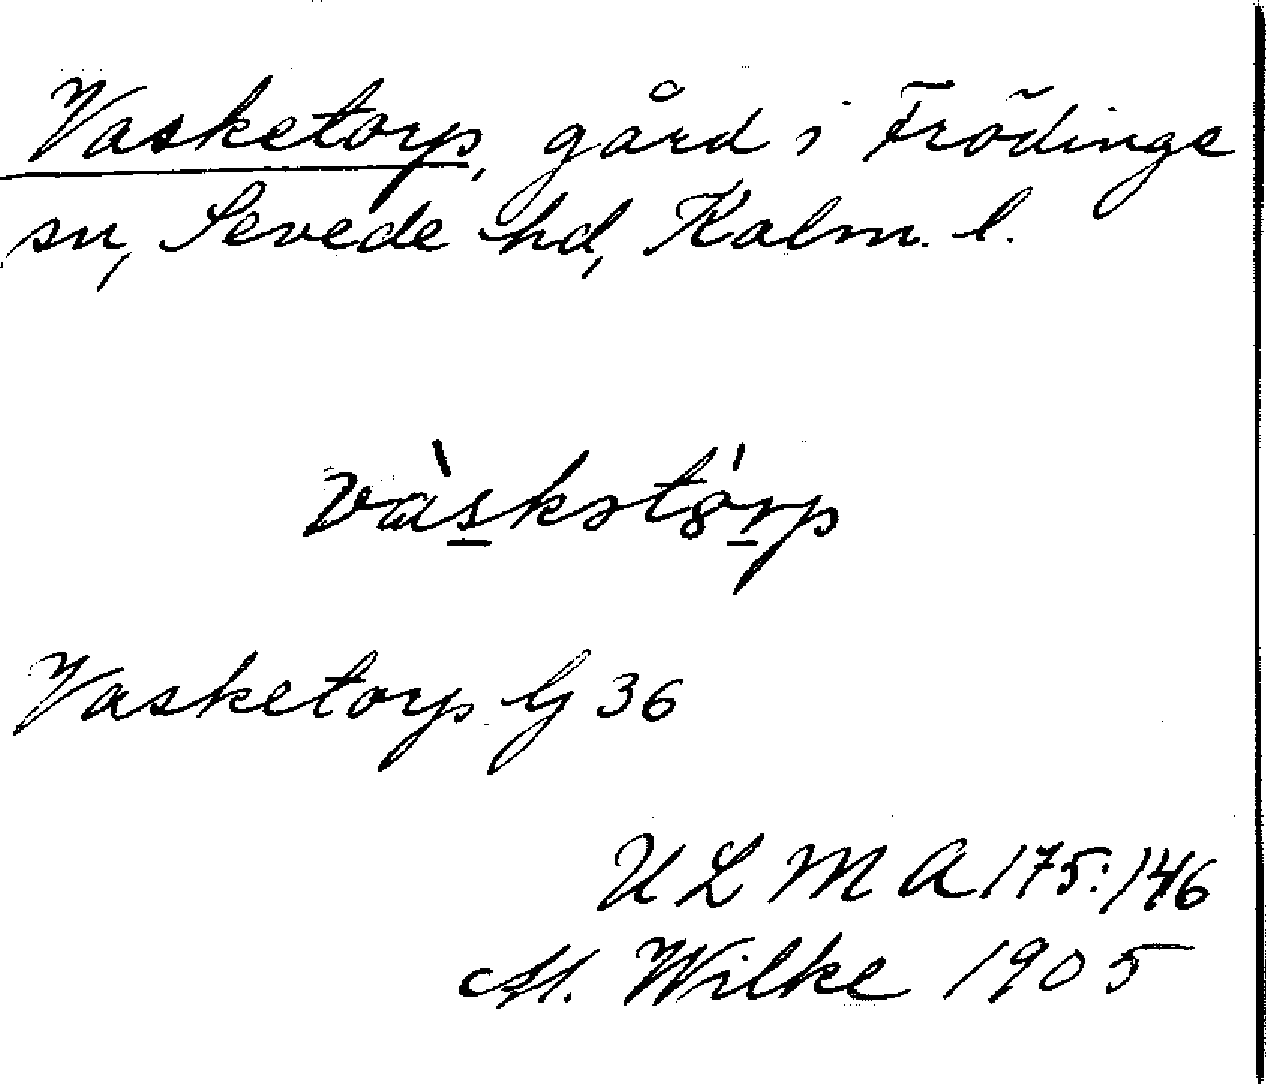 Vasketorp, gård i Frödinge
sn, Sevede hd, Kalm. l.
Vasketorp G 36
U L M A 175:146
M. Wilke 1905